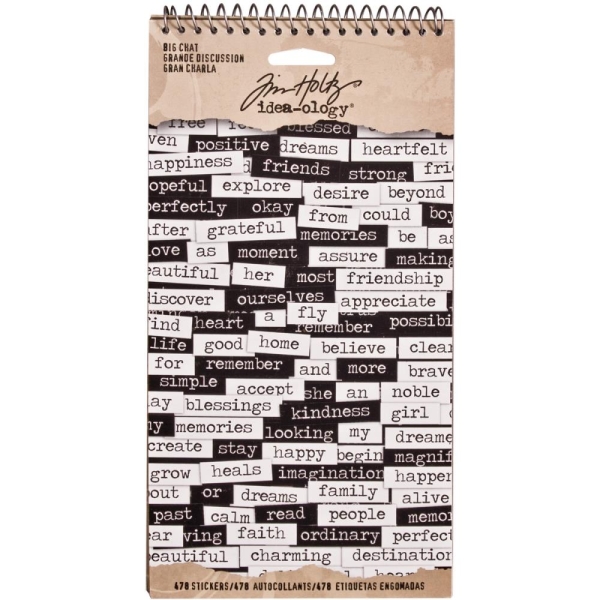 BIG CHAT
GRANDE DISCUSSION
GRAN CHARLA
Tim Holtz
idea-ology®
free blessed
ven positive dreams heartfelt
happiness friends strong frie
opeful explore desire beyond
perfectly okay from could boy
after grateful memories be as
love as moment assure making
eautiful her most friendship
discover ourselves appreciate
ind heart a fly remember possibi
life good home believe clear
for remember and more brave
simple accept she an noble
ay blessings kindness girl
y memories looking my dreame
create stay happy begin magnif
grow heals imagination happen
out or dreams family alive
past calm read people memo
ear ving faith ordinary perfect
eautiful charming destination
478 STICKERS/478 AUTOCOLLANTS/478 ETIQUETAS ENGOMADAS